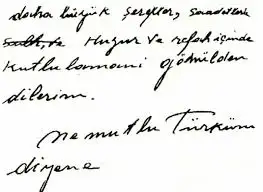 daha büyük şerefler, saadetlerle
ve Huzur ve refah içinde
kutlulamanı gönülden
dilerim.
ne mutlu Türküm
diyene